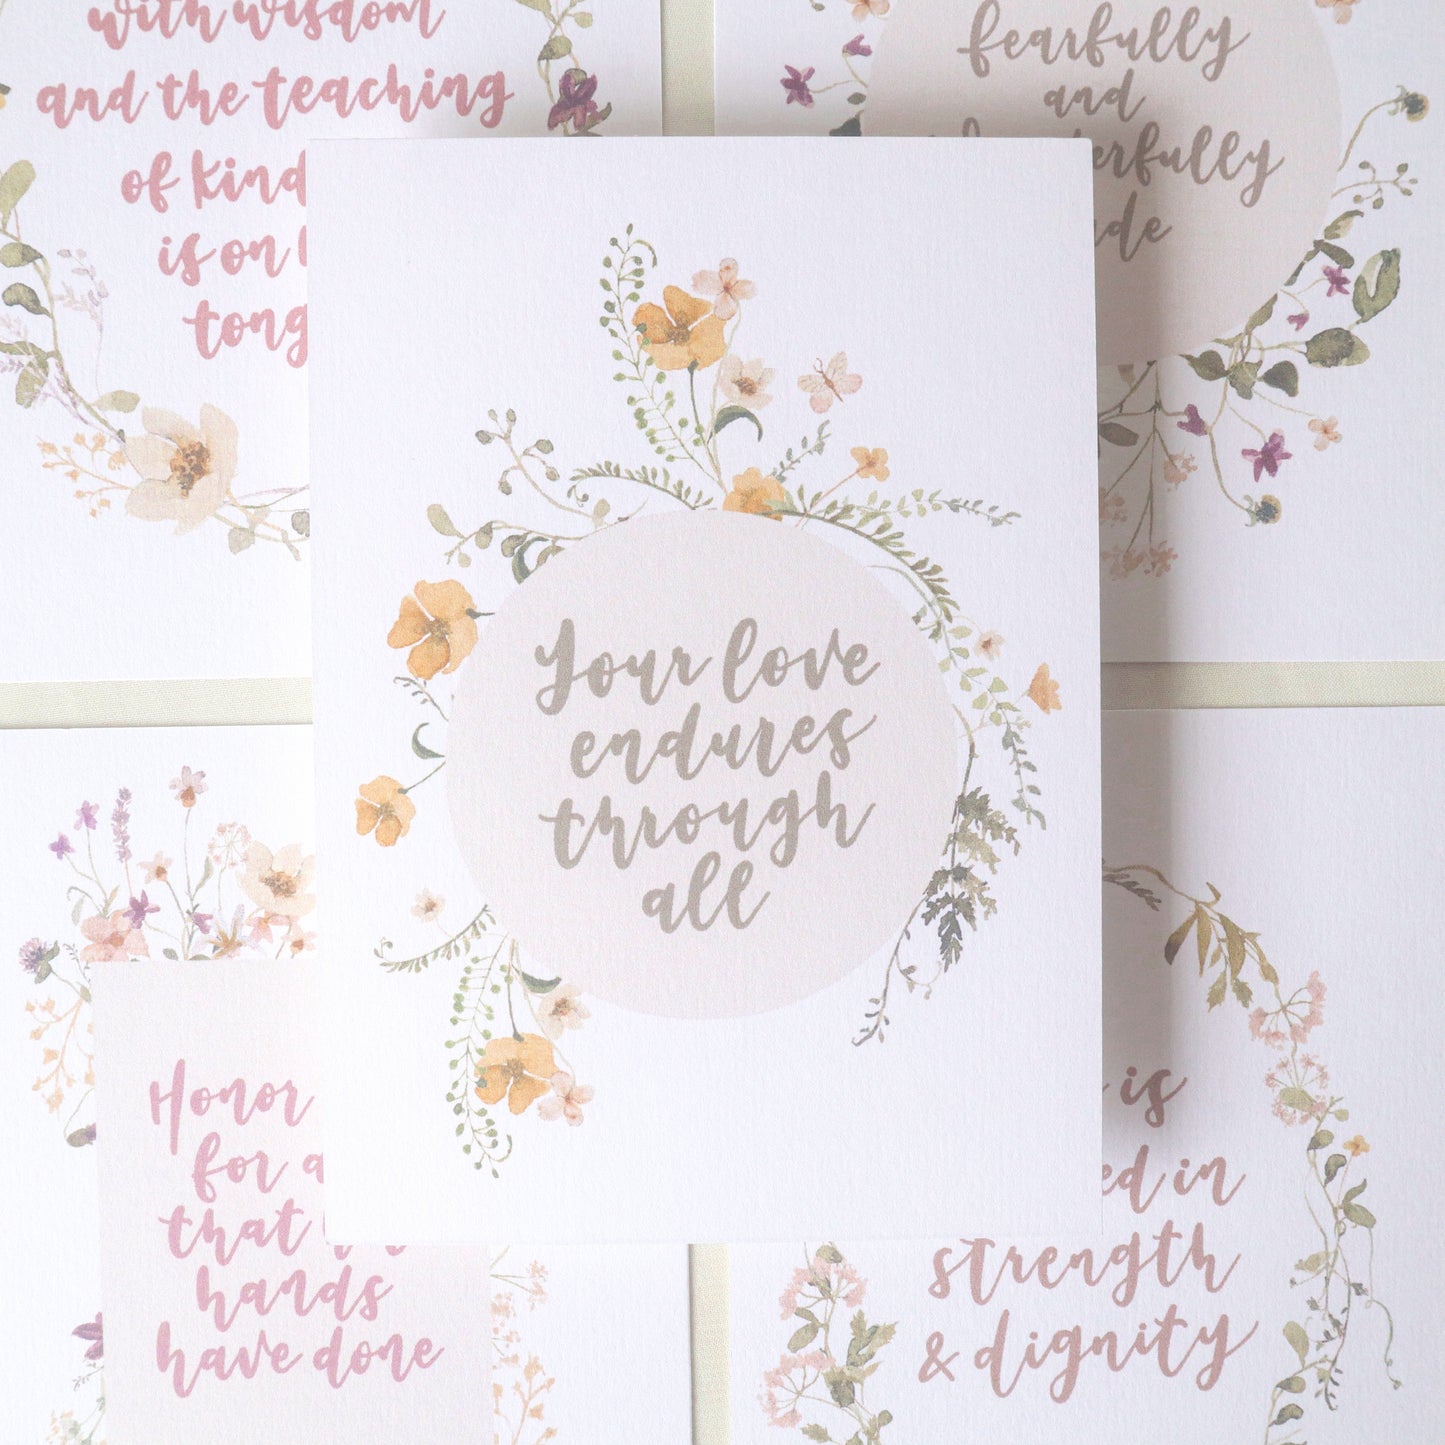 with wisdom
and the teaching
of kind
is on
tong
fearfully
and
erfully
de
Your love
endures
through
all
Honor
for a
that
hands
have done
is
ed in
strength
& dignity